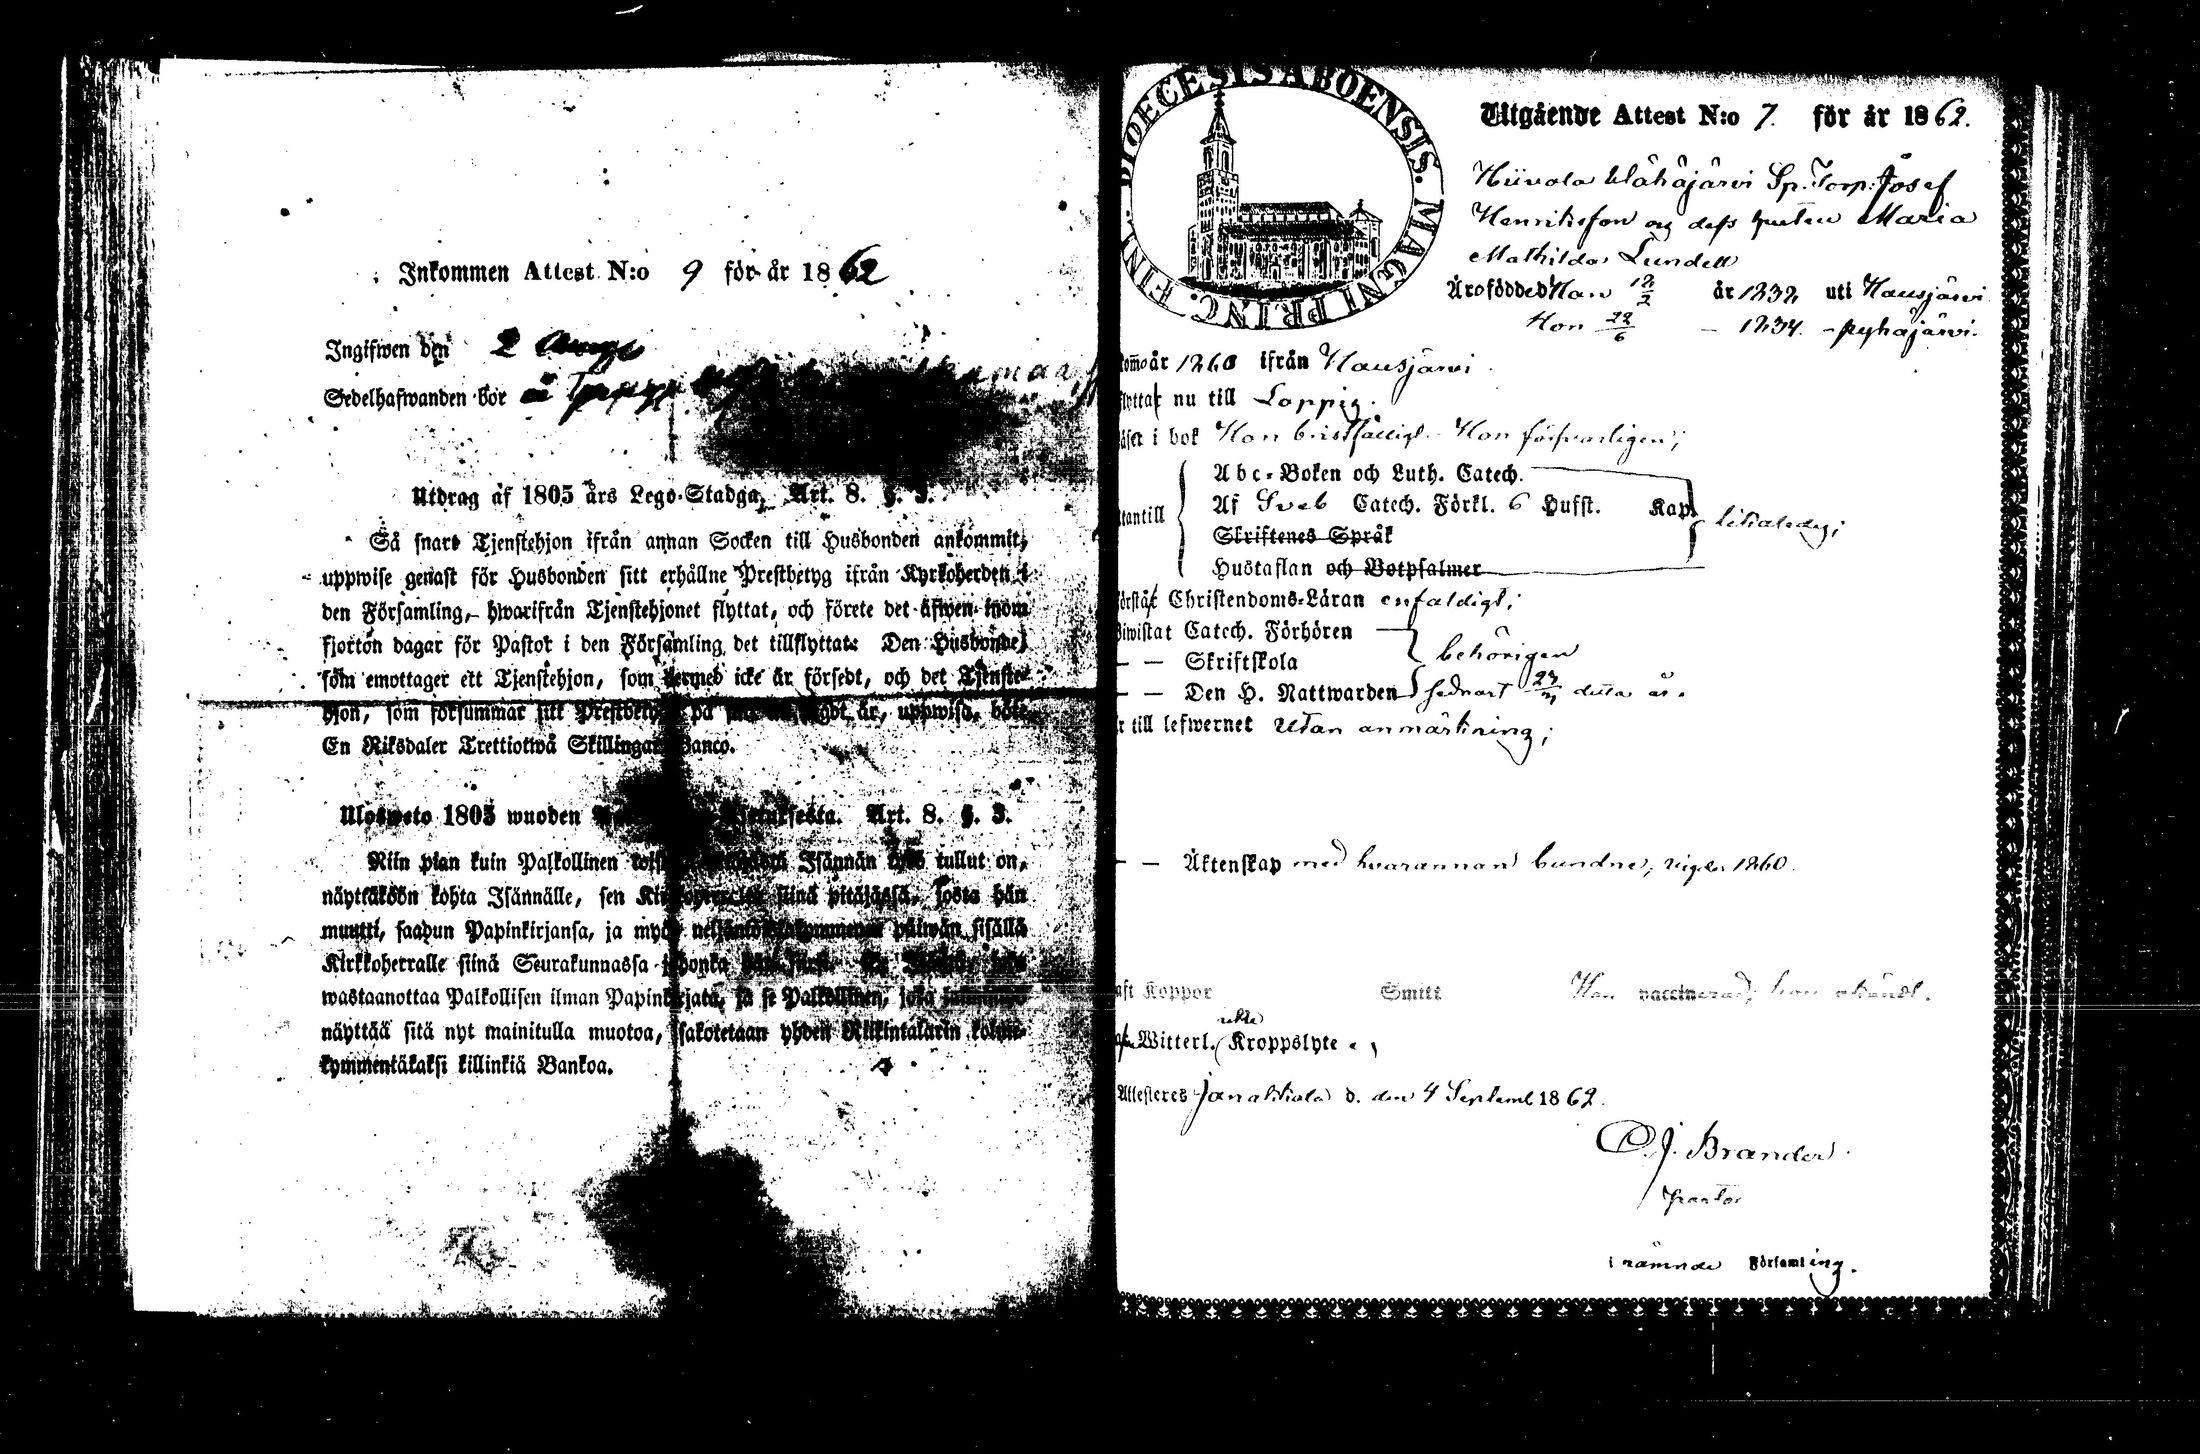 Inkommen Attest N:o 9 för år 1862
Ingifwen den 2
Sedelhafwanden bör
Utdrag af 1805 års Lego-Stadga, Art. 8. §. 3.
Så snart Tjenstehjon ifrån annan Socken till Husbonden ankommit,
uppwise genast för Husbonden sitt erhållne Prestbetyg ifrån Kyrkoherden i
den Församling, hwarifrån Tjenstehjonet flyttat, och förete det äfwen inom
fjorton dagar för Pastor i den Församling det tillflyttat: Den Husbonde,
som emottager ett Tjenstehjon, som dermed icke är försedt, och det Tjenste-
hjon, som försummar sitt Prestbetyg på sätt är, uppwisa, böte
En Riksdaler Trettiotwå Skillingar Banco.
Ulosweto 1805 wuoden Art. 8. §. 3.
Niin pian kuin Palkollinen Isännän tullut on,
näyttäköön kohta Isännälle, sen siinä pitäjässä, josta hän
muutti, saadun Papinkirjansa, ja myös päiwän sisällä
Kirkkoherralle siinä Seurakunnassa johonka
wastaanottaa Palkollisen ilman Papinkirjata, ja se Palkollinen, joka
näyttää sitä nyt mainitulla muotoa, sakotetaan yhden Riikintalarin kolme-
kymmentäkaksi killinkiä Bankoa.
DIOECESIS ABOENSIS. MAGNI PRINC. FINL.
Utgående Attest N:o 7. för år 1862.
Hiivola Wähäjärvi Sp. Torp. Josef
Henriksson och dess hustru Maria
Mathilda Lundell
Äro födde Han 12/2 år 1832 uti Hausjärvi
Hon 22/6 – 1834. – Pyhäjärvi.
komo år 1860 ifrån Hausjärvi
flytta nu till Loppis.
läser i bok Han bristfälligt. Hon försvarligen;
Abc-Boken och Luth. Catech.
Af Sveb Catech. Förkl. 6 Hufst. Kap.
utantill likaledes;
Skriftenes Språk
Hustaflan och Botpsalmer
förstå Christendoms-Läran enfaldigt;
biwistat Catech. Förhören
– – Skriftskola behörigen
– – Den H. Nattwarden sednast detta år.
är till lefwernet utan anmärkning;
– – Äktenskap med hvarannan bundne, vigde 1860.
haft Koppor Smitt Han vaccinerad; hon
Witterl. Kroppslyte
Attesteres Janakkala d. den 4 Septemb 1862.
J. Brander
Pastor
i nämnde Församling.